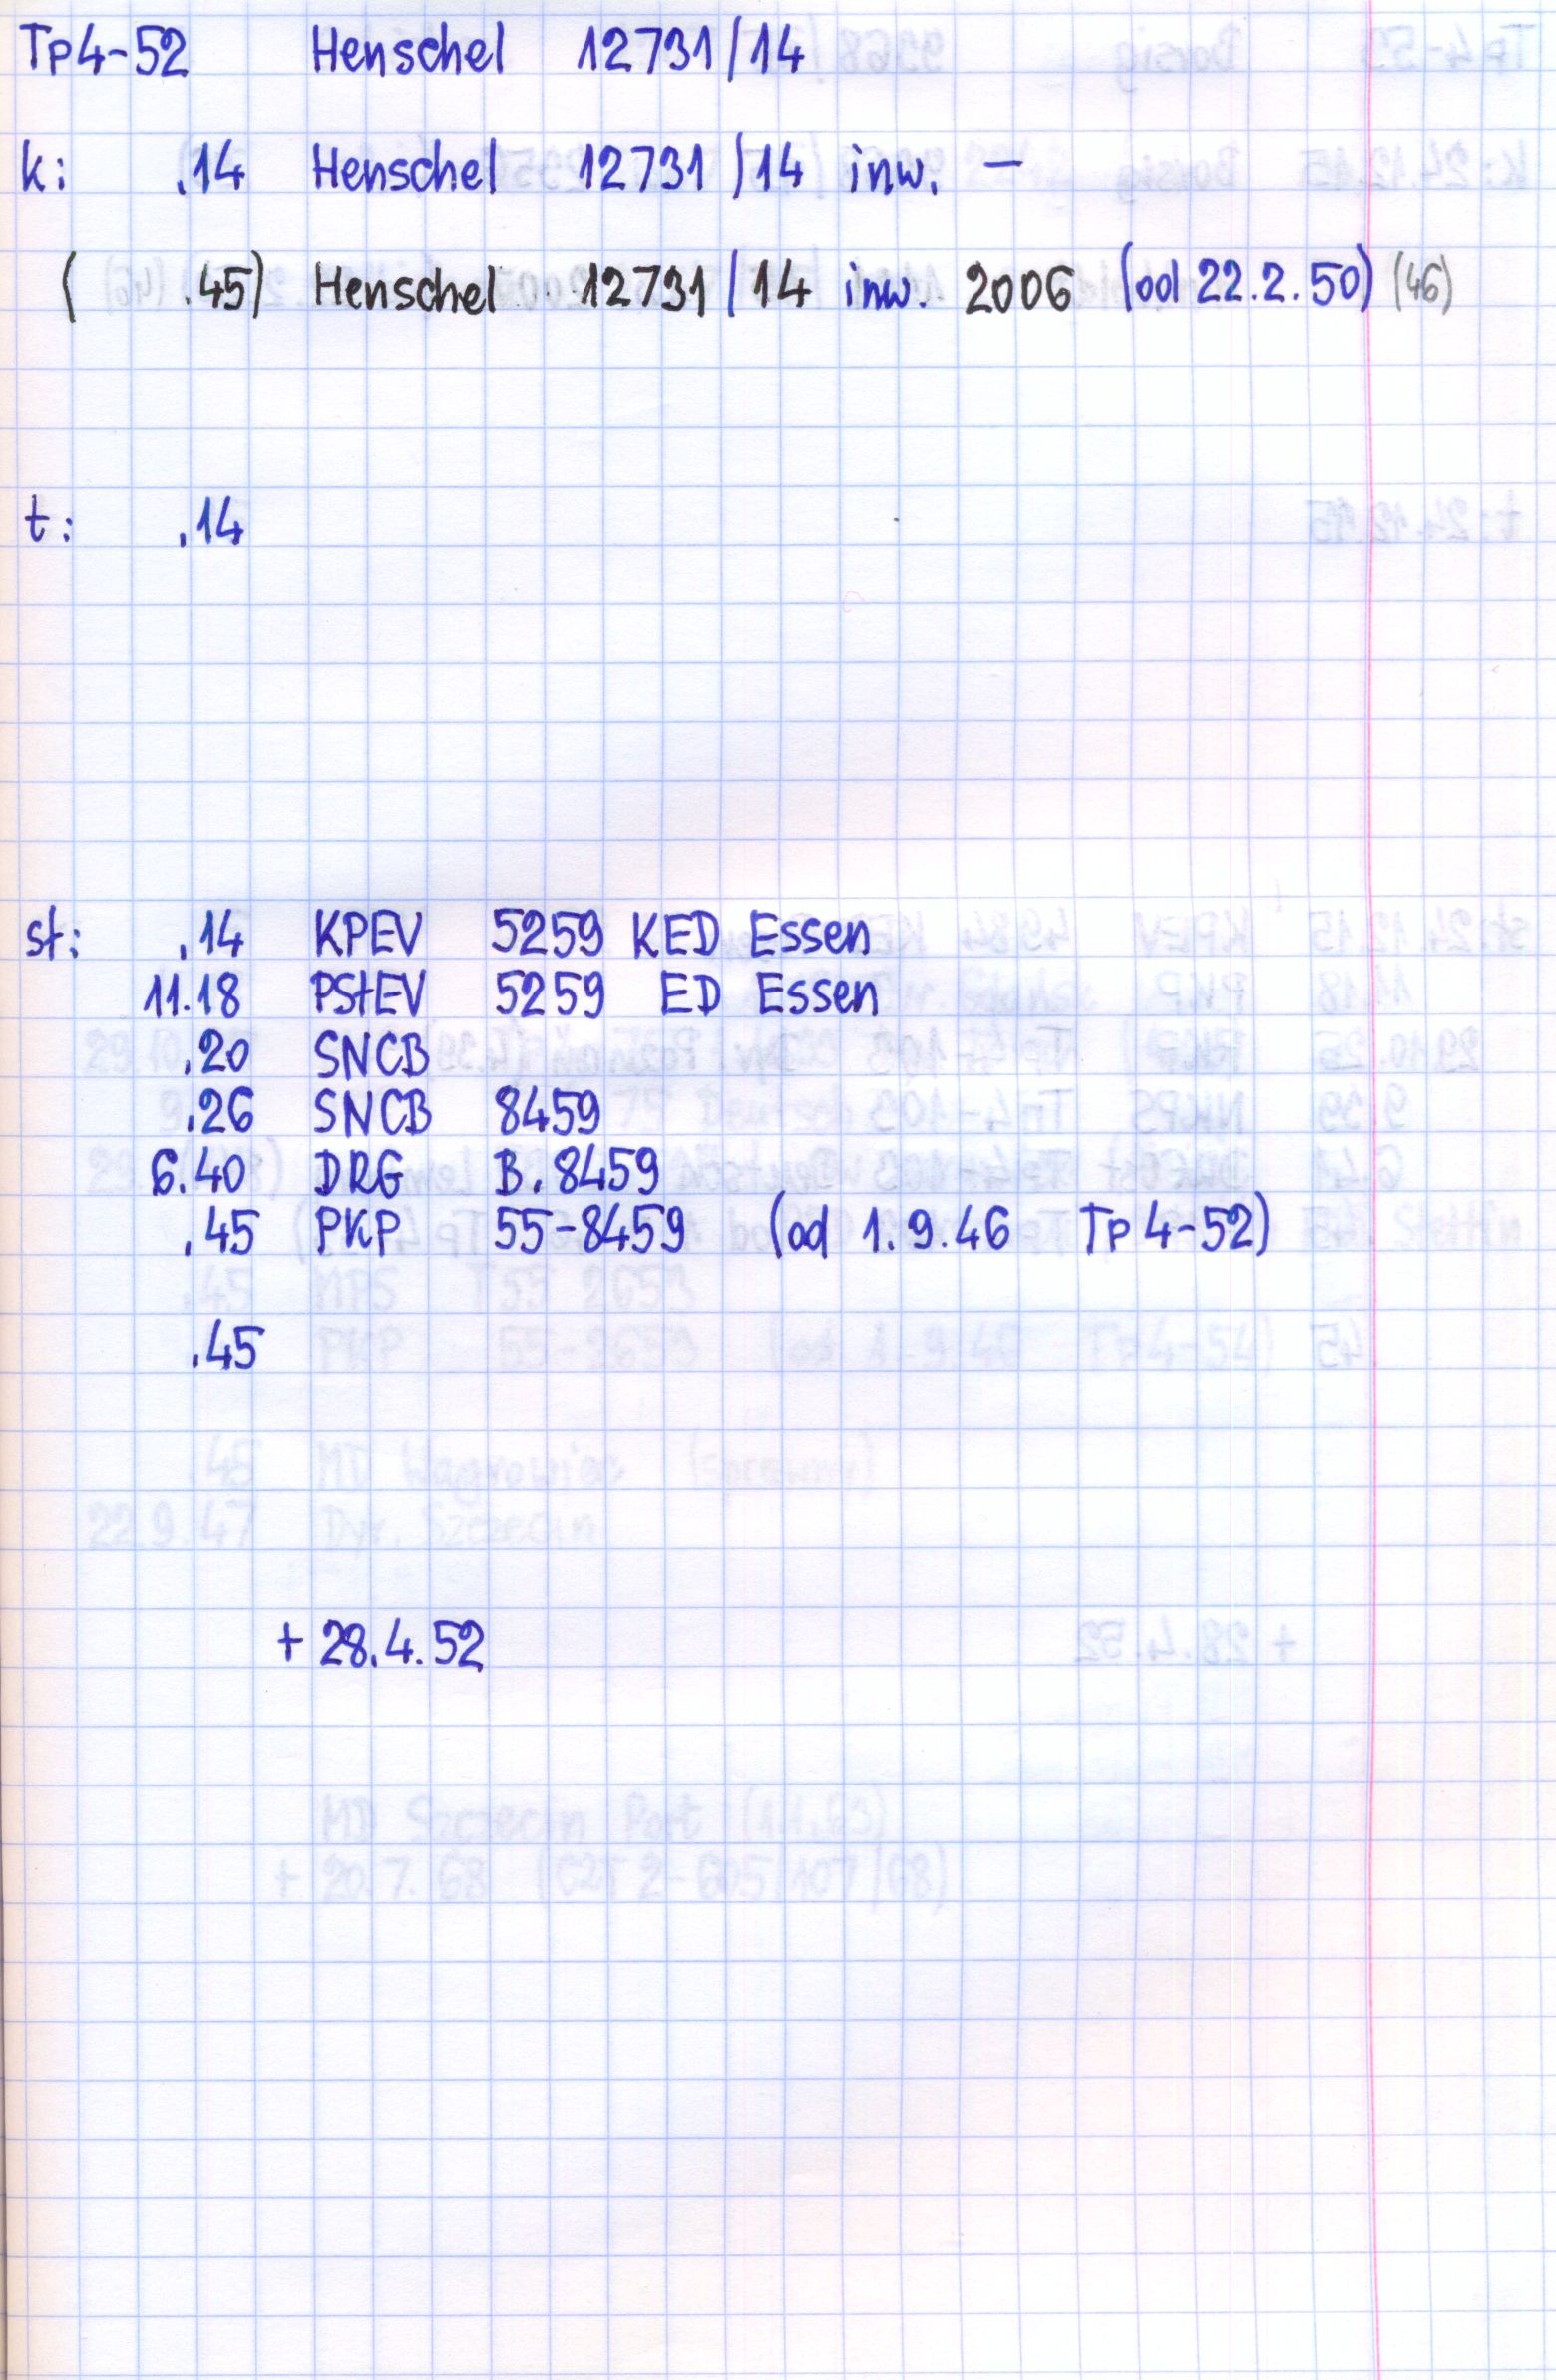 Tp4-52 Henschel 12731/14
k: .14 Henschel 12731/14 inw. —
( .45) Henschel 12731/14 inw. 2006 (od 22.2.50) (46)
t: .14
st: .14 KPEV 5259 KED Essen
11.18 PStEV 5259 ED Essen
.20 SNCB
.26 SNCB 8459
6.40 DRG B.8459
.45 PKP 55-8459 (od 1.9.46 Tp4-52)
.45
+ 28.4.52